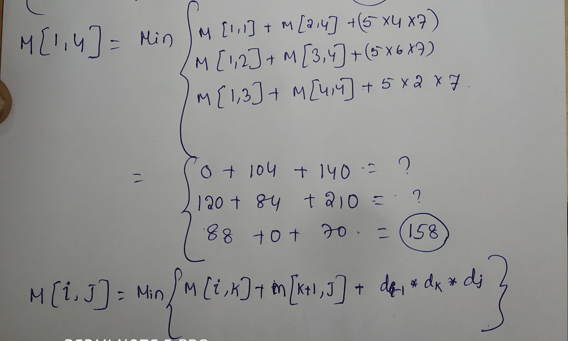 M[1,4] = Min { M[1,1] + M[2,4] + (5×4×7)
M[1,2] + M[3,4] + (5×6×7)
M[1,3] + M[4,4] + 5×2×7
= { 0 + 104 + 140 = ?
120 + 84 + 210 = ?
88 + 0 + 70 = 158
M[i,J] = Min { M[i,K] + m[K+1,J] + di-1 * dK * dj }